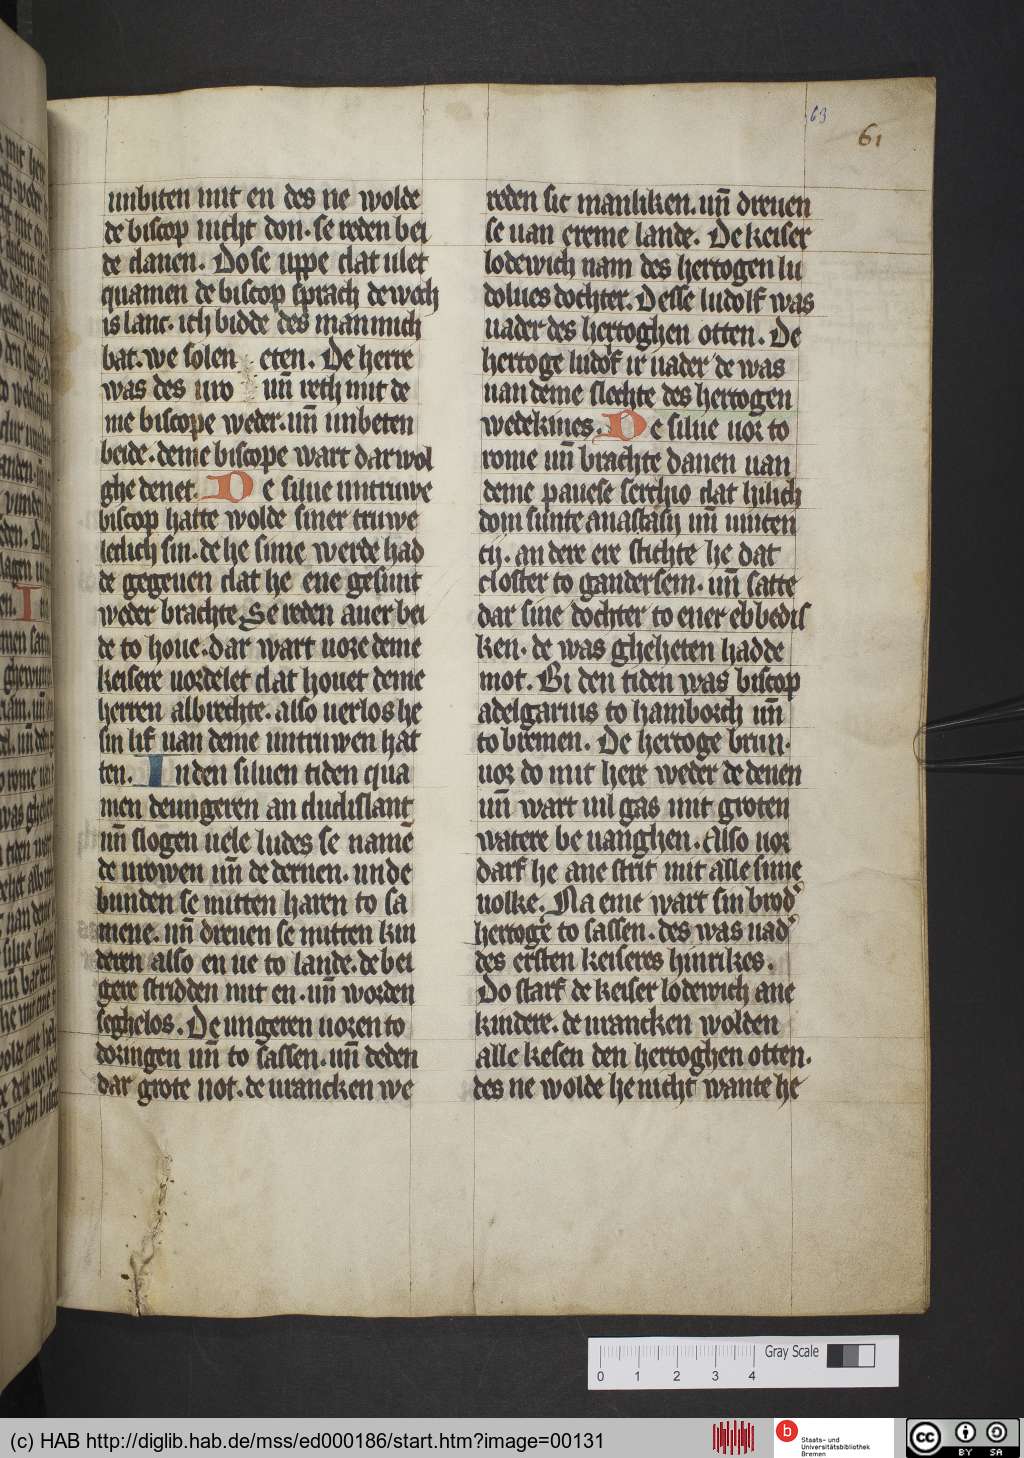 63
61
unbiten mit en des ne wolde
de biscop nicht don. se reden bei
de danen. Do se uppe dat vlet
quamen de biscop sprach de wech
is lanc. ich bidde des man mich
bat. we solen eten. De herre
was des vro uñ reth mit de
me biscope weder. uñ unbeten
beide. deme biscope wart dar wol
ghe denet. De silue untruwe
biscop hatte wolde siner truwe
ledich sin. de he sime werde had
de gegeuen dat he ene gesunt
weder brachte. Se reden auer bei
de to houe. dar wart uore deme
keisere uordelet dat houet deme
herren albrechte. also uerlos he
sin lif uan deme untruwen hat
ten. In den siluen tiden qua
men de ungeren an dudislant
uñ slogen uele ludes se namē
de urowen uñ de dernen. unde
bunden se mitten haren to sa
mene. uñ dreuen se mitten kin
deren also en ue to lande. de bei
gere stridden mit en. uñ worden
seghelos. De ungeren uoren to
doringen uñ to sassen. uñ deden
dar grote not. de urancken we
reden sic manliken. uñ dreuen
se uan ereme lande. De keiser
lodewich nam des hertogen lu
dolues dochter. Desse ludolf was
uader des hertoghen otten. De
hertoge ludolf ir uader de was
uan deme slechte des hertogen
wedekines. De silue uor to
rome uñ brachte danen uan
deme pauese serchio dat hilich
dom sunte anastasij uñ innocen
cij. an dere ere stichte he dat
closter to gandersem. uñ satte
dar sine dochter to ener ebbedis
ken. de was gheheten hadde
mot. Bi den tiden was biscop
adelgarius to hamborch uñ
to bremen. De hertoge brun.
uor do mit here weder de denen
uñ wart uil gas mit groten
watere be uanghen. Also uor
darf he ane strit mit alle sime
uolke. Na eme wart sin brod'
hertoge to sassen. des was uad'
des ersten keiseres hinrikes.
Do starf de keiser lodewich ane
kindere. de urancken wolden
alle kesen den hertoghen otten.
des ne wolde he nicht wante he
Gray Scale
0 1 2 3 4
(c) HAB http://diglib.hab.de/mss/ed000186/start.htm?image=00131
b
Staats- und
Universitätsbibliothek
Bremen
cc BY SA